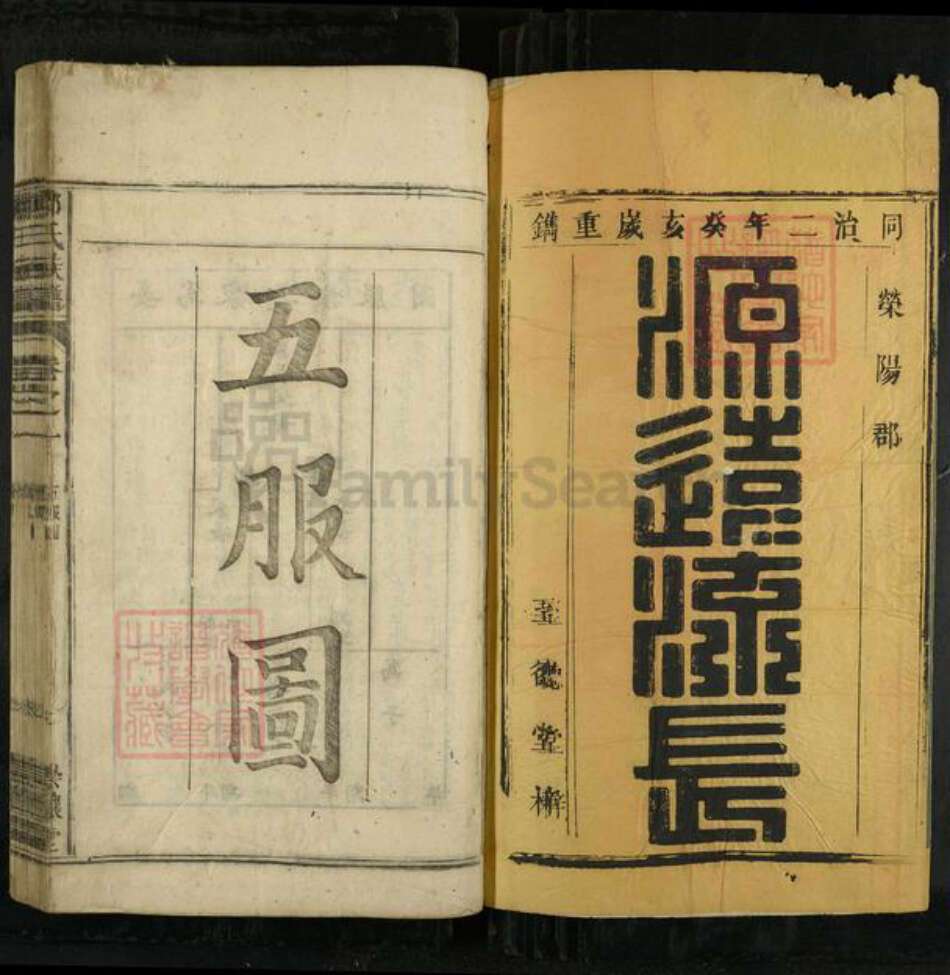 同治二年癸亥歲重鐫
滎陽郡
源遠流長
德堂梓
五服圖
鄭氏族譜
FamilySearch